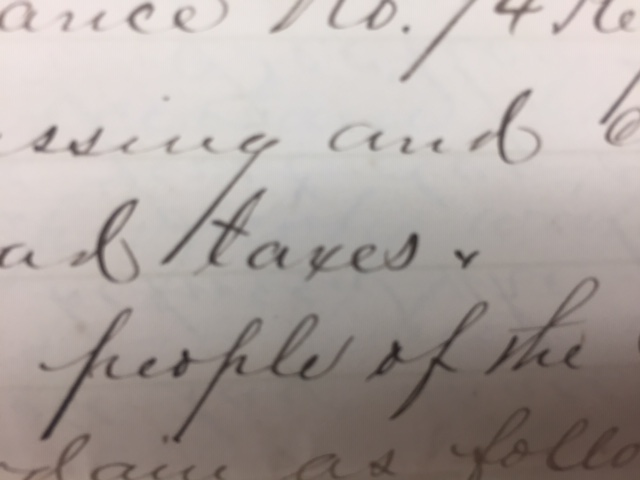 ance No. 74
ssing and
ad taxes.
people of the
dain as follo